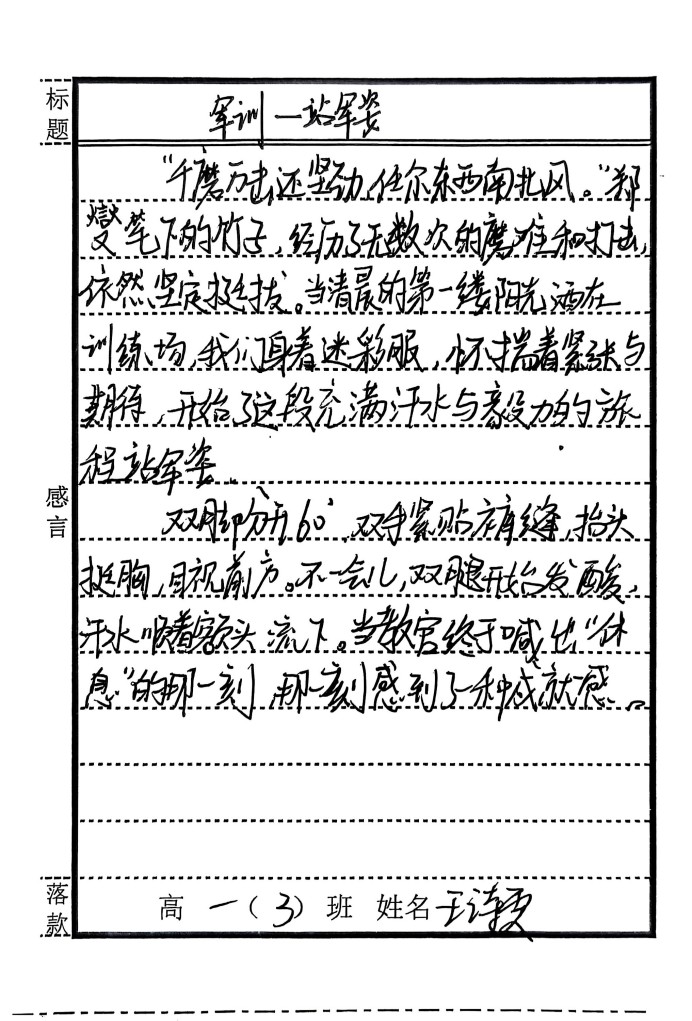 标题
军训一站军姿
"千磨万击还坚劲,任尔东西南北风。"郑
燮笔下的竹子,经历了无数次的磨难和打击,
依然坚定挺拔。当清晨的第一缕阳光洒在
训练场,我们身着迷彩服,怀揣着紧张与
期待,开始了这段充满汗水与毅力的旅
程站军姿.
感言
双脚分开60°,双手紧贴裤缝,抬头
挺胸,目视前方。不一会儿,双腿开始发酸,
汗水顺着额头流下。当教官终于喊出"休
息"的那一刻,那一刻感到了一种成就感.
落款
高一(3)班 姓名 王诗